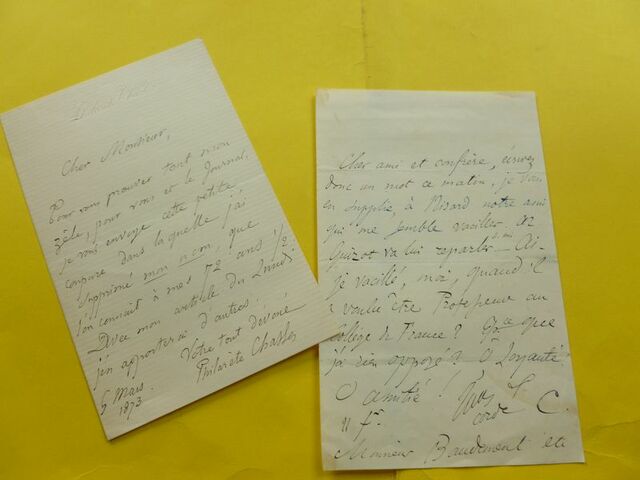 Cher Monsieur,
Pour vous prouver tout mon
zèle, pour vous et le Journal,
je vous envoye cette petite
dans laquelle j'ai
supprimé mon nom, que
l'on connait à mes 72 ans 1/2.
Avec mon article du Lundi
j'en apporterai d'autres.
Votre tout dévoué
Philarète Chasles
5 Mars.
1873
Cher ami et confrère, écrivez
donc un mot ce matin, je vous
en supplie, à Nisard notre ami
qui me semble vaciller. Mr
Guizot va lui reparler. Ai-
je vacillé, moi, quand il
a voulu être Professeur au
Collège de France? que
j'ai rien opposé? O Loyauté!
O amitié!
corde C.
11 fr.
Monsieur Baudement etc